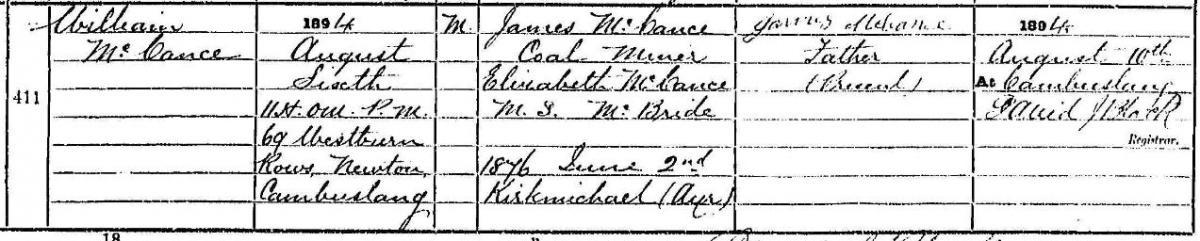 411
William
Mc Cance
1894
August
Sixth
11H. 0M. P.M.
69 Westburn
Rows, Newton,
Cambuslang
M.
James McCance
Coal Miner
Elizabeth McCance
M.S. McBride
1876 June 2nd
Kirkmichael (Ayr)
James McCance
Father
(Present)
1894
August 10th
At Cambuslang
David
Registrar.
18